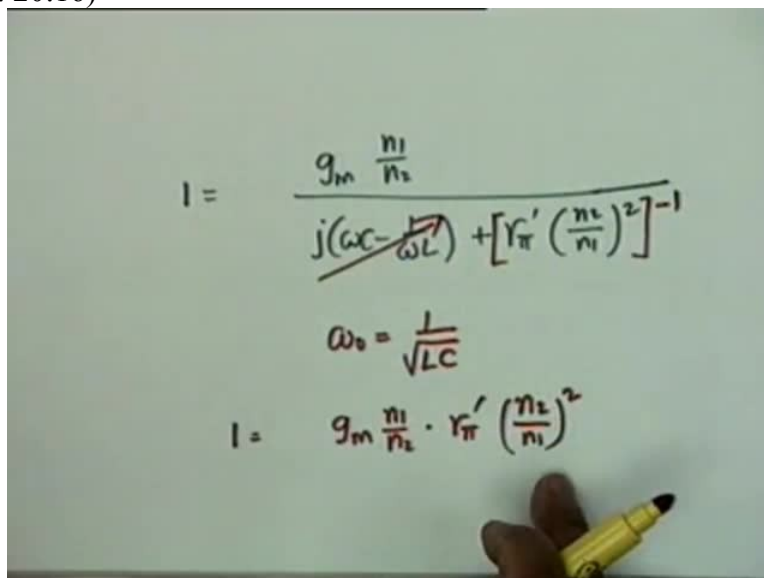 20.10)
1 = g_m n_1/n_2 / j(ωC - 1/ωL) + [r_π' (n_2/n_1)^2]^-1
ω_0 = 1/√LC
1 = g_m n_1/n_2 · r_π' (n_2/n_1)^2